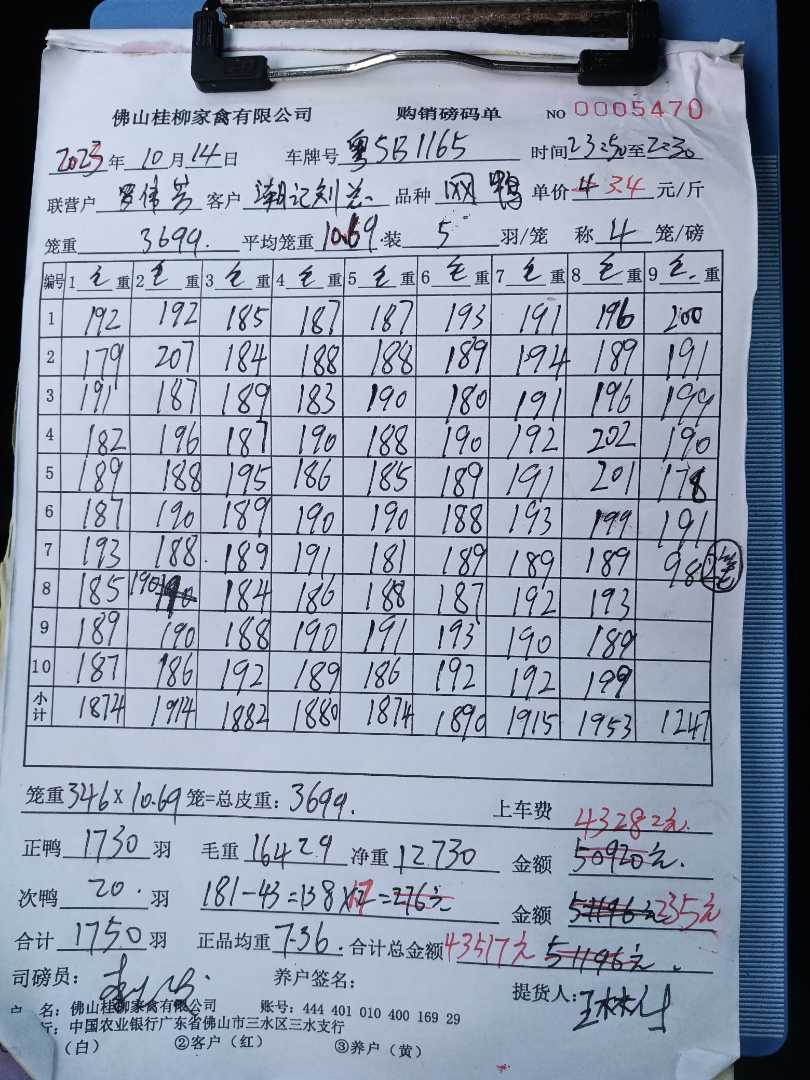 佛山桂柳家禽有限公司 购销磅码单 NO 0005470
2023年10月14日 车牌号 粤SB1165 时间 23:50至2:30
联营户 罗伟 客户 潮记刘 品种 鸭 单价 4 3.4 元/斤
笼重 3699. 平均笼重 10.69 装 5 羽/笼 称 4 笼/磅
编号 1 毛重 2 毛重 3 毛重 4 毛重 5 毛重 6 毛重 7 毛重 8 毛重 9 毛重
1 192 192 185 187 187 193 191 196 200
2 179 207 184 188 188 189 194 189 191
3 191 187 189 183 190 180 191 196 199
4 182 196 187 190 188 190 192 202 190
5 189 188 195 186 185 189 191 201 178
6 187 190 189 190 190 188 193 199 191
7 193 188 189 191 181 189 189 189 98
8 185 190 184 186 188 187 192 193
9 189 190 188 190 191 193 190 189
10 187 186 192 189 186 192 192 199
小计 1874 1914 1882 1880 1874 1890 1915 1953 1247
笼重 346 X 10.69 笼=总皮重: 3699. 上车费
43282元.
正鸭 1730 羽 毛重 16429 净重 12730 金额 50920元.
次鸭 20. 羽 181-43=138 X 17 =276元 金额 51196元 235元
合计 1750 羽 正品均重 7.36. 合计总金额 43517元 51196元.
司磅员: 养户签名: 提货人:
名: 佛山桂柳家禽有限公司 账号: 444 401 010 400 169 29
行: 中国农业银行广东省佛山市三水区三水支行
(白) ②客户(红) ③养户(黄)